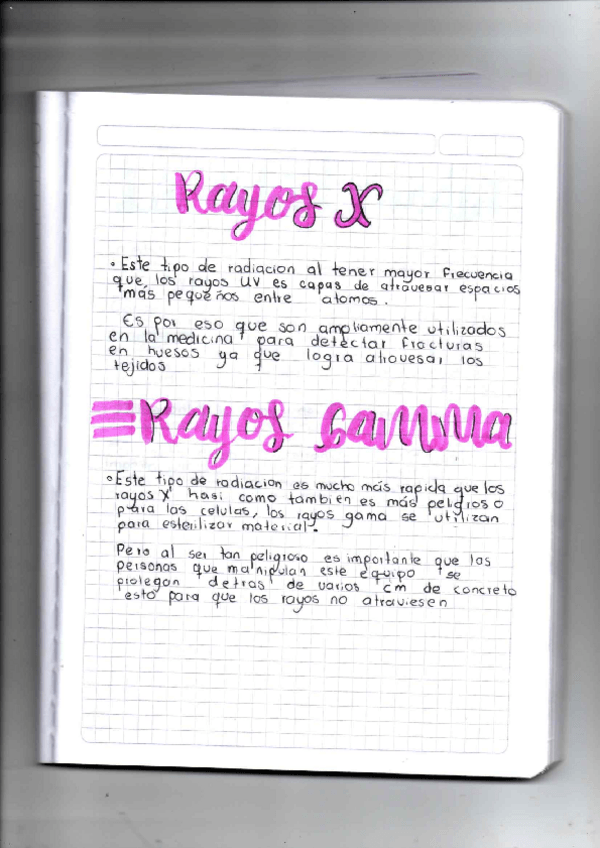 Rayos X
• Este tipo de radiacion al tener mayor frecuencia
que los rayos UV es capas de atravesar espacios
más pequeños entre atomos.
Es por eso que son ampliamente utilizados
en la medicina para detectar fracturas
en huesos ya que logra atravesar los
tejidos
Rayos Gamma
• Este tipo de radiacion es mucho más rapida que los
rayos X hasi como tambien es más peligroso
para las celulas, los rayos gama se utilizan
para esterilizar material.
Pero al ser tan peligroso es importante que las
personas que manipulan este equipo se
protegan detras de varios cm de concreto
esto para que los rayos no atraviesen